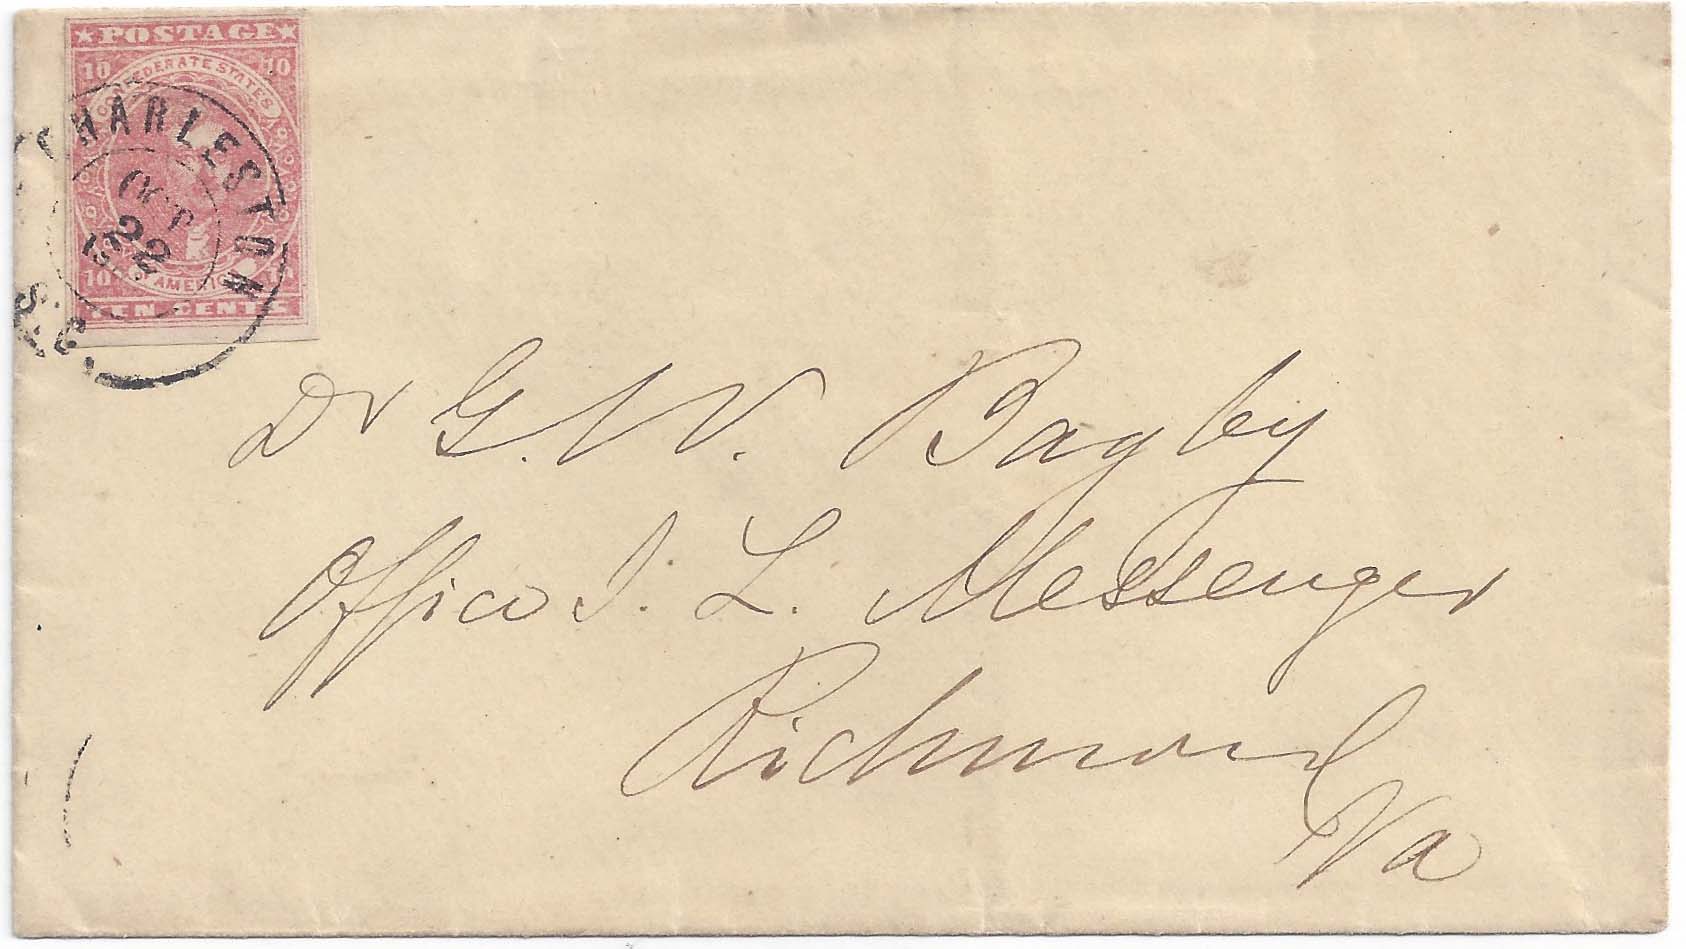 ★POSTAGE★
10 10
CONFEDERATE STATES
OF AMERICA
10
TEN CENTS
CHARLESTON
OCT
22
S.C.
Dr G. W. Bagby
Office S. L. Messenger
Richmond
Va